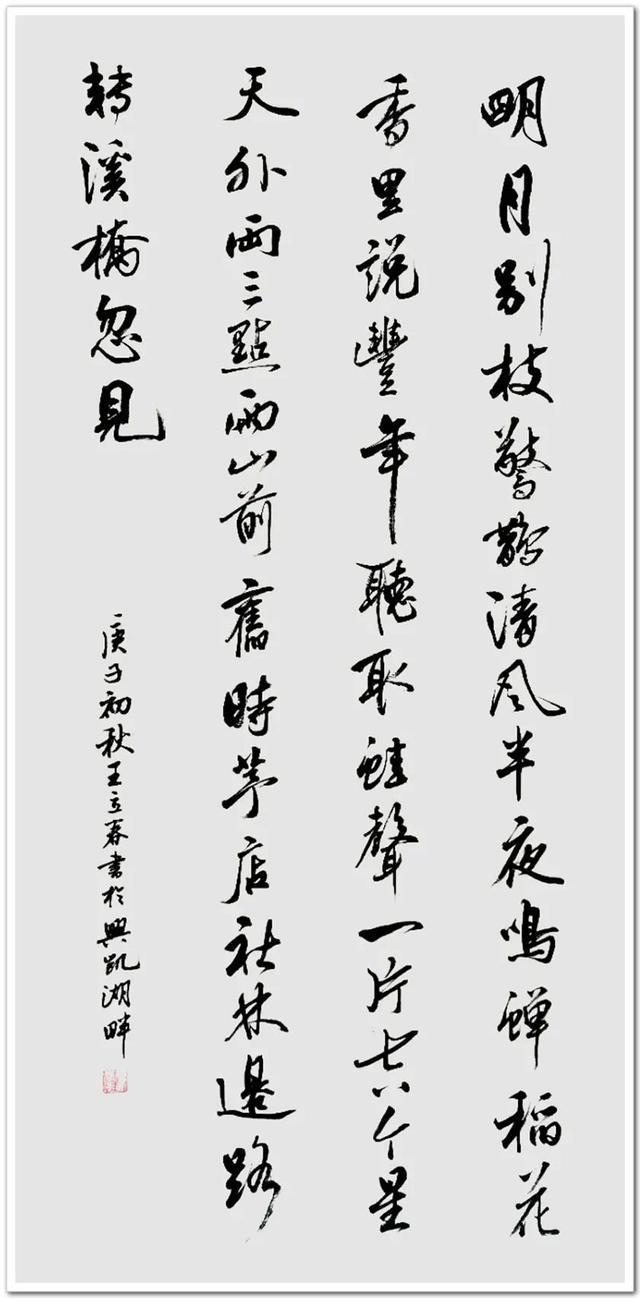 明月别枝驚鵲清風半夜鳴蟬稻花
香里説豐年聽取蛙聲一片七八个星
天外兩三點雨山前舊時茅店社林邊路
轉溪橋忽見
庚子初秋王立春書於興凱湖畔